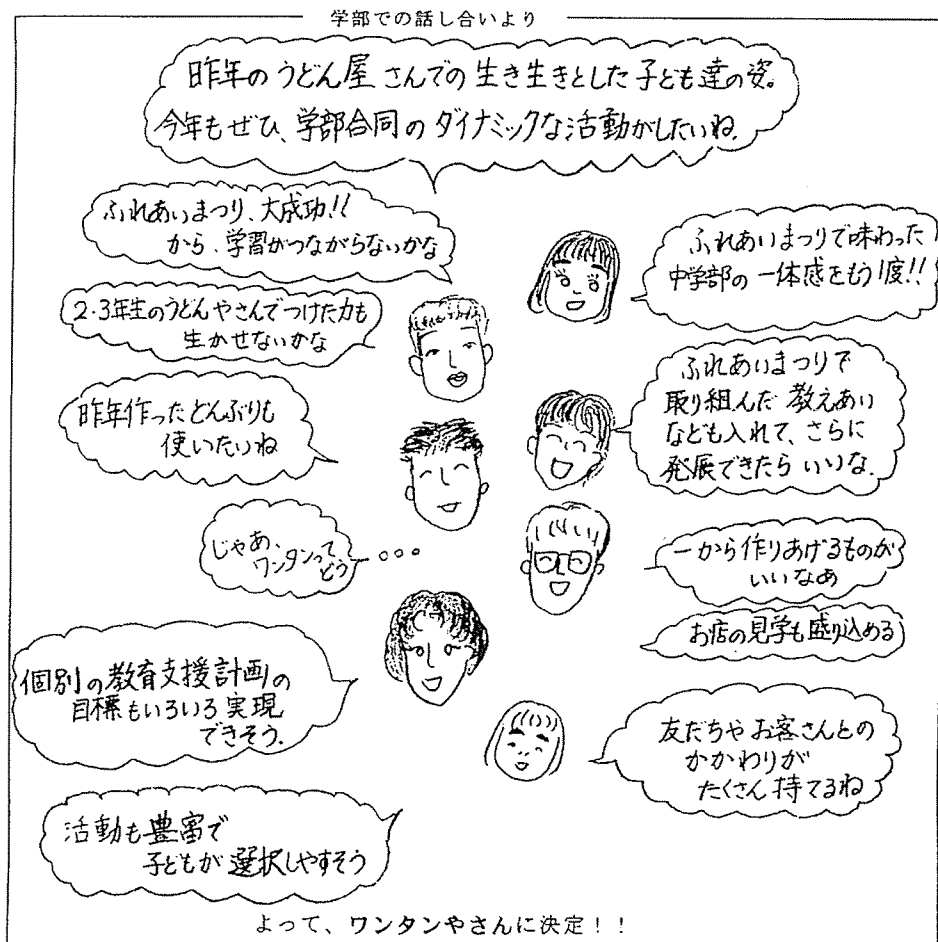 学部での話し合いより
昨年のうどん屋さんでの生き生きとした子ども達の姿。
今年もぜひ、学部合同のダイナミックな活動がしたいね。
ふれあいまつり、大成功!!
から、学習がつながらないかな
ふれあいまつりで味わった
中学部の一体感をもう1度!!
2・3年生のうどんやさんでつけた力も
生かせないかな
ふれあいまつりで
取り組んだ教えあい
なども入れて、さらに
発展できたらいいな。
昨年作ったどんぶりも
使いたいね
じゃあ、
ワンタンって
どう
一から作りあげるものが
いいなあ
お店の見学も盛り込める
個別の教育支援計画の
目標もいろいろ実現
できそう。
友だちやお客さんとの
かかわりが
たくさん持てるね
活動も豊富で
子どもが選択しやすそう
よって、ワンタンやさんに決定!!